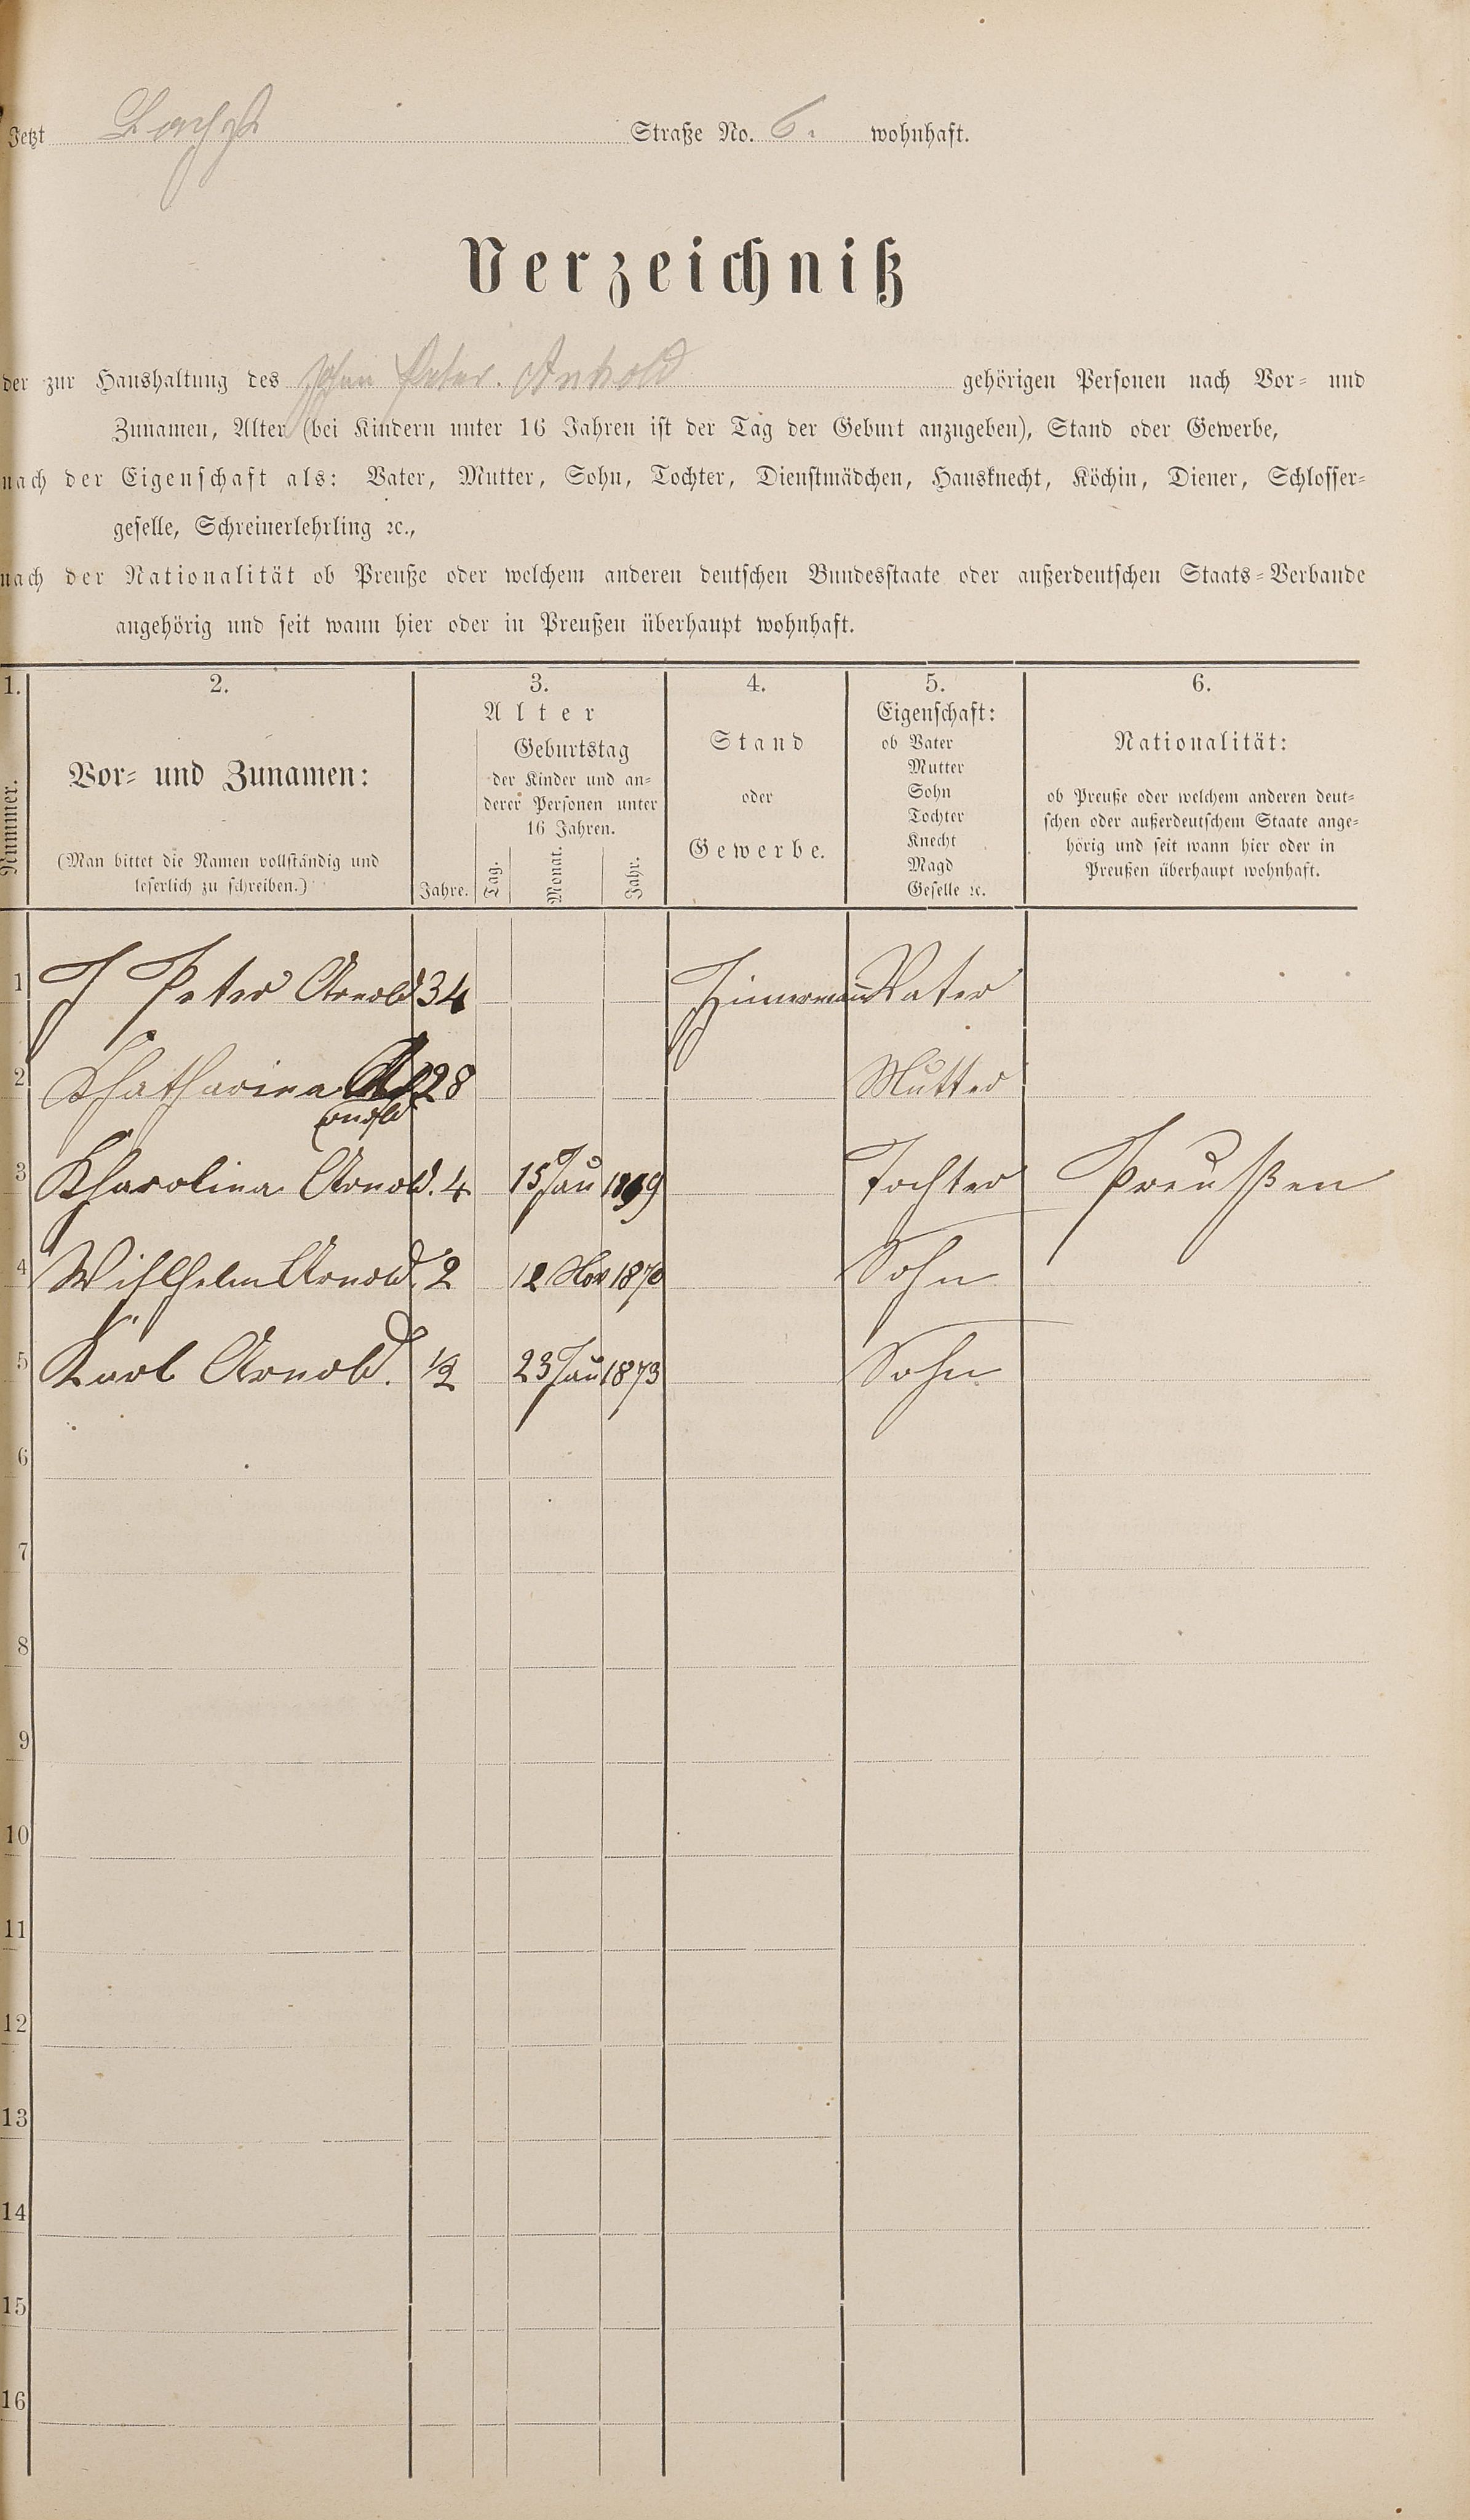 Jetzt Straße No. 6. wohnhaft.
Verzeichniß
der zur Haushaltung des Johan Peter. Arnold gehörigen Personen nach Vor- und
Zunamen, Alter (bei Kindern unter 16 Jahren ist der Tag der Geburt anzugeben), Stand oder Gewerbe,
nach der Eigenschaft als: Vater, Mutter, Sohn, Tochter, Dienstmädchen, Hausknecht, Köchin, Diener, Schlosser-
geselle, Schreinerlehrling ꝛc.,
nach der Nationalität ob Preuße oder welchem anderen deutschen Bundesstaate oder außerdeutschen Staats-Verbande
angehörig und seit wann hier oder in Preußen überhaupt wohnhaft.
1. 2. 3. 4. 5. 6.
Nummer.
Vor- und Zunamen:
(Man bittet die Namen vollständig und
leserlich zu schreiben.)
Alter
Jahre.
Geburtstag
der Kinder und an-
derer Personen unter
16 Jahren.
Tag. Monat. Jahr.
Stand
oder
Gewerbe.
Eigenschaft:
ob Vater
Mutter
Sohn
Tochter
Knecht
Magd
Geselle ꝛc.
Nationalität:
ob Preuße oder welchem anderen deut-
schen oder außerdeutschem Staate ange-
hörig und seit wann hier oder in
Preußen überhaupt wohnhaft.
1 J Peter Arnold 34 Zimermann Vater
2 Khatharina 28 Mutter
Arnold
3 Kharolina Arnold. 4 15 Jan 1869 Tochter Preußen
4 Wihlhelm Arnold. 2 12 Nov 1870 Sohn
5 Karl Arnold. 1/2 23 Jan 1873 Sohn
6
7
8
9
10
11
12
13
14
15
16